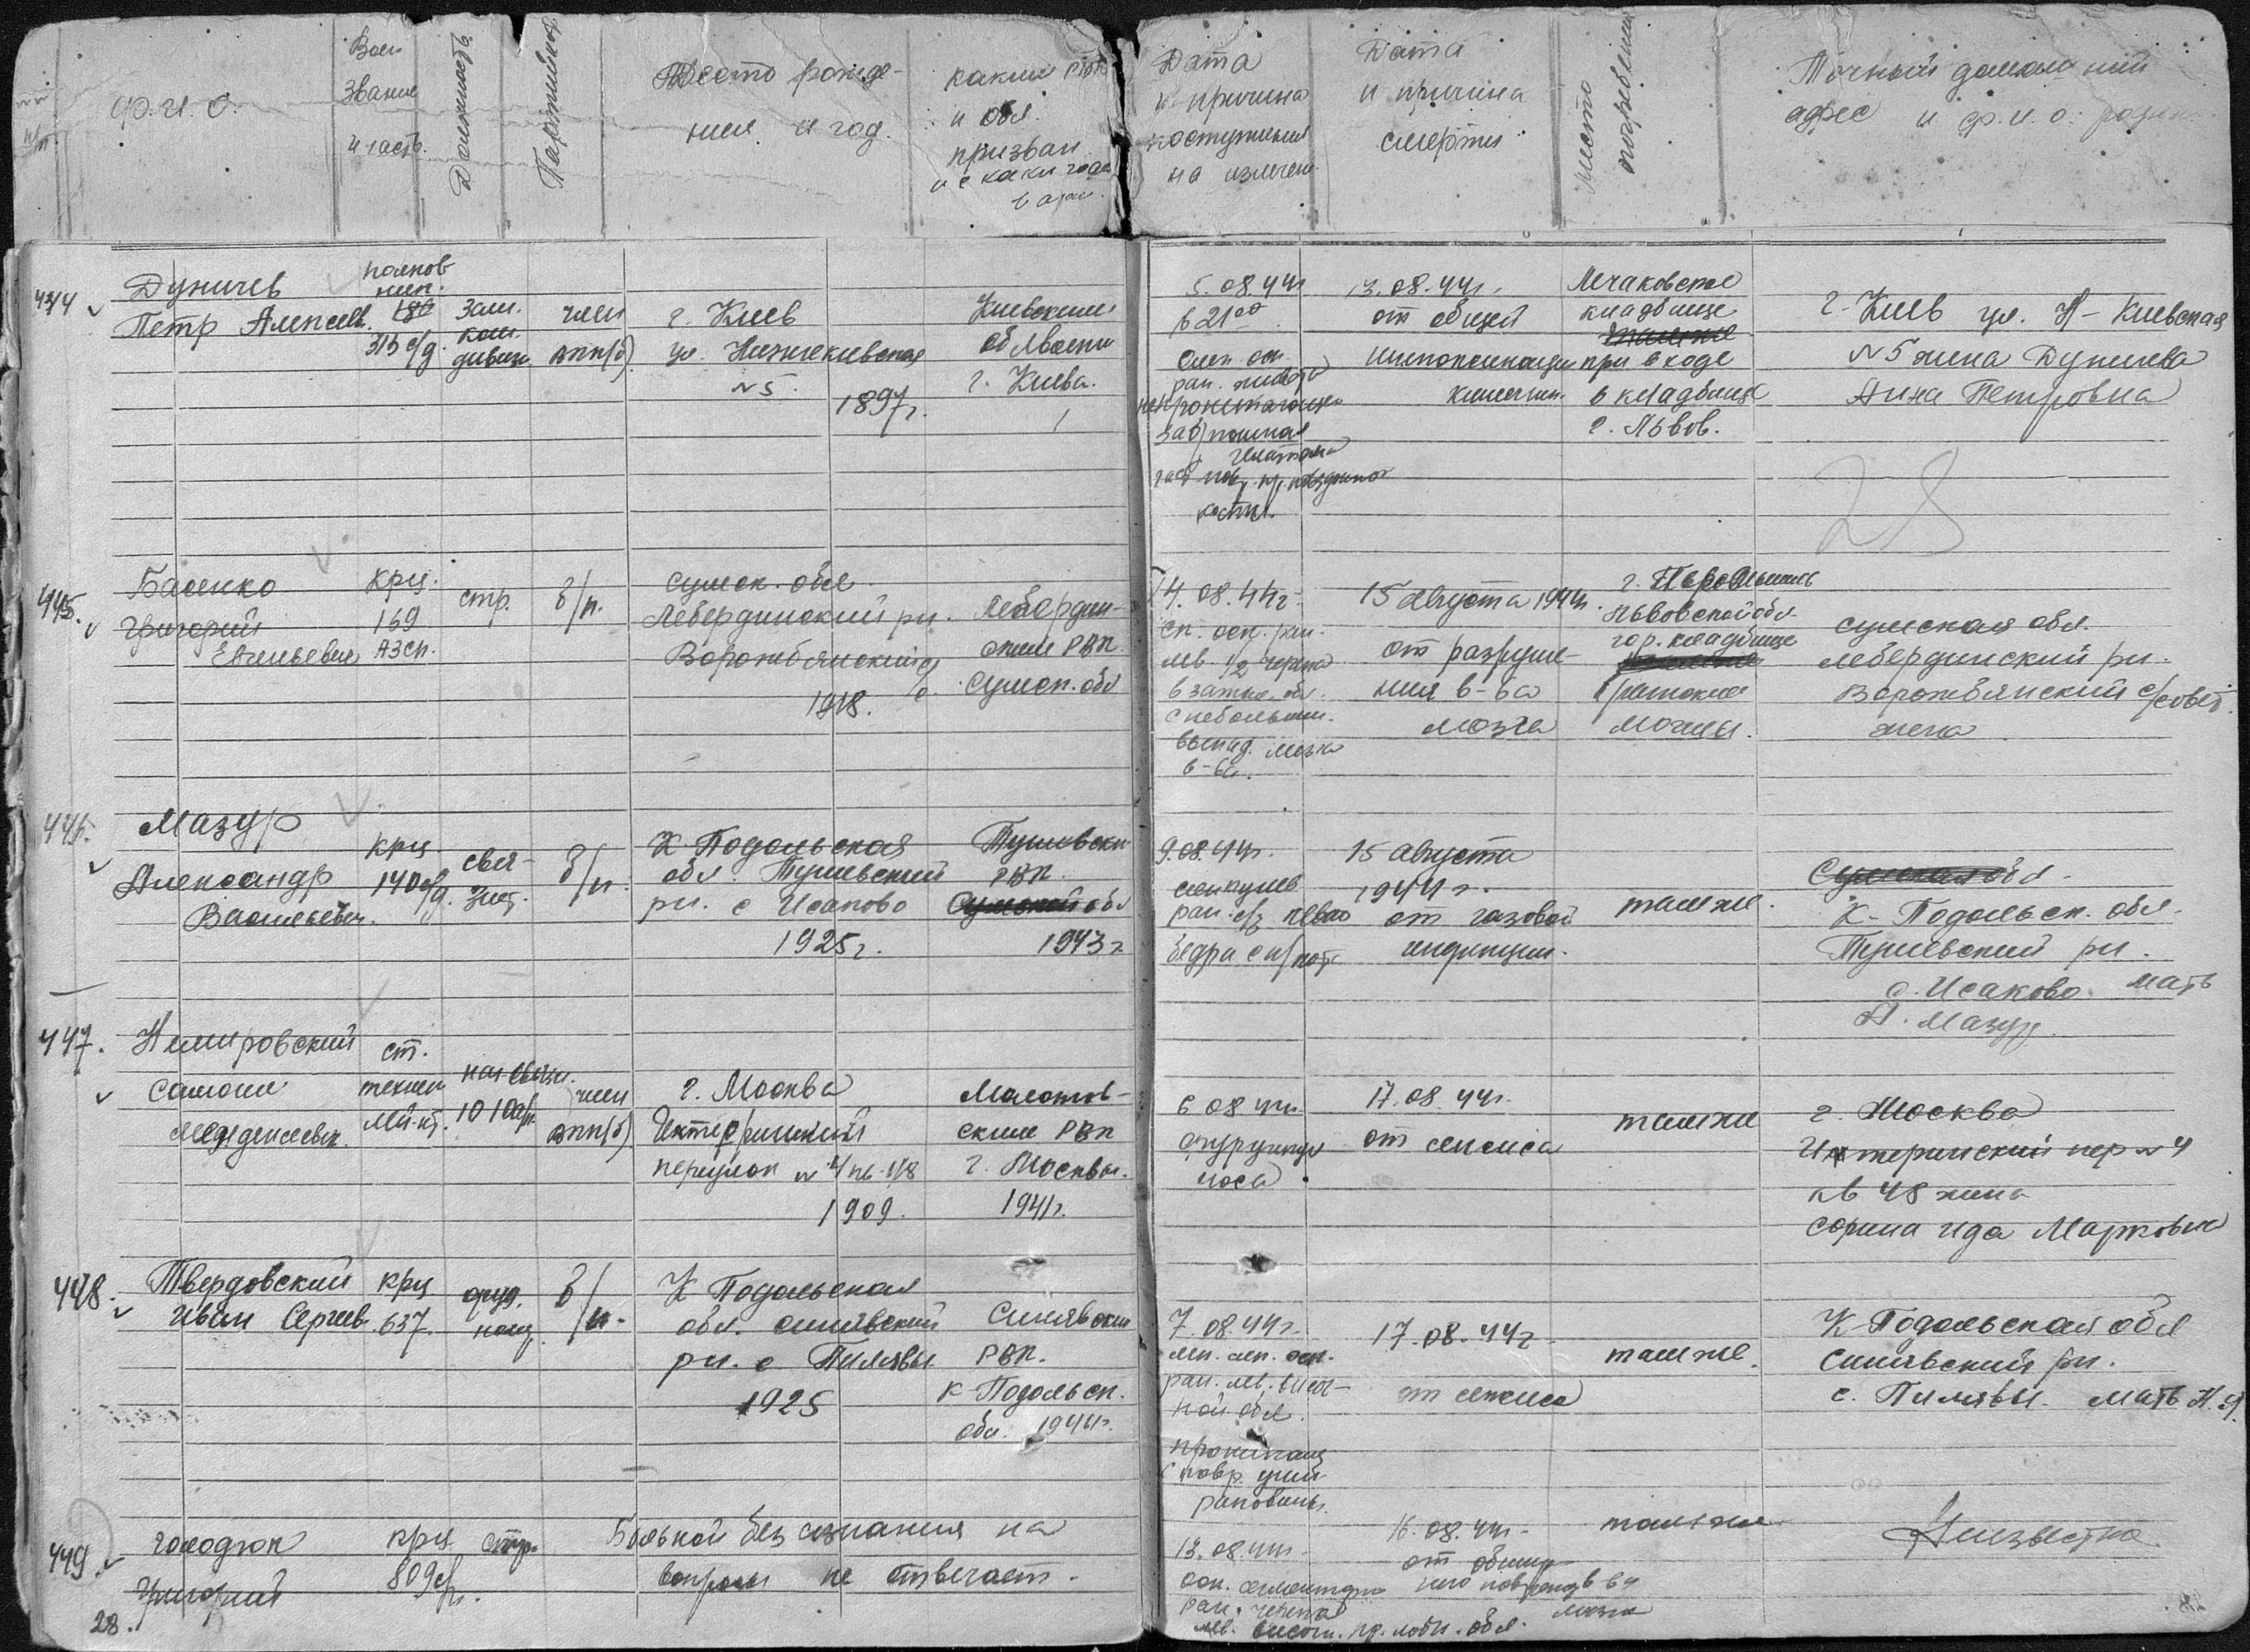 Ф.И.О.
Воен
звание
и часть.
Должность
Партийность
Место рожде-
ния и год.
каким РВК
и обл.
призван
и с како года
в арм.
Дата
и причина
поступления
на излечен.
Дата
и причина
смерти
Место
погребения
Точный домашний
адрес и ф.и.о. родств.
444
Дуничев
Петр Алексеев.
полков
ник.
313 с/д.
Зам.
ком.
дивиз.
член
ВКП(б)
г. Киев
ул. Нижнекиевская
№5.
1897г.
Киевским
облвоенк
г. Киева.
5.08.44г
в 21 00
Слеп. оск.
ран. живота
непроникающее
13.08.44г.
от общей
интоксикации
кишечник.
Лычаковское
кладбище
при входе
в кладбище
г. Львов.
г. Киев ул. Н-Киевская
№5 жена Дуничева
Анна Петровна
забрюшная
гематома
костей.
28
445.
Басенко
Григорий
Евгеньевич
Крц.
169
АЗСП.
стр.
б/п.
Сумск. обл
Лебединский рн.
Ворожбянский с/с
1918.
Лебедин-
ским РВК.
Сумск. обл
14.08.44г.
сп. оск. ран.
лев. 1/2 черепа
в затыл. обл.
с небольшим.
выпад. мозга
в-ва.
15 августа 1944г.
от разруше-
ния в-ва
мозга
г. Перемышль
Львовской обл.
гор. кладбище
братские
могилы.
Сумская обл.
Лебединский рн.
Ворожбянский с/совет.
жена
446.
Мазур
Александр
Васильевич.
Крц.
140 с/д.
свя-
зист.
б/п.
К-Подольская
обл.
рн. с Исаково
1925г.
РВК.
Сумской обл
1943г
9.08.44г.
ран. с/з левого
бедра с п/кост
15 августа
1944г.
от газовой
инфекции.
там же.
Сумская обл.
К-Подольск. обл.
рн.
с. Исаково. мать
А. Мазур.
447.
Немировский
Самоил
ст.
техник
лей-нт.
нач связи.
1010 ап.
член
ВКП(б)
г. Москва
переулок №4 кв. 48
1909.
Молотов-
ским РВК
г. Москвы.
1941г.
6.08.44г.
фурункул
носа
17.08.44г.
от сепсиса
там же
г. Москва
пер №4
кв 48 жена
Сорина Ида Марковна
448.
Твердовский
Иван Сергеев.
Крц
637.
оруд.
ном.
б/п.
К-Подольская
обл. Синявский
рн. с Пилявы
1925
Синявским
РВК.
К-Подольск.
обл. 1944г.
7.08.44г.
ран. лев. височ-
ной обл.
проникающ
с повр. ушн.
раковины.
17.08.44г.
от сепсиса
там же.
К-Подольская обл
Синявский рн.
с. Пилявы. мать Н.Я.
449.
Голодюк
Григорий
крц
809 сп.
стр.
Больной без сознания на
вопросы не отвечает.
13.08.44г.
оск.
ран. черепа
лев. височн. пр. лобн. обл.
16.08.44г.
от обшир-
ного поврежд в-ва
мозга
там же
Неизвестно.
28.